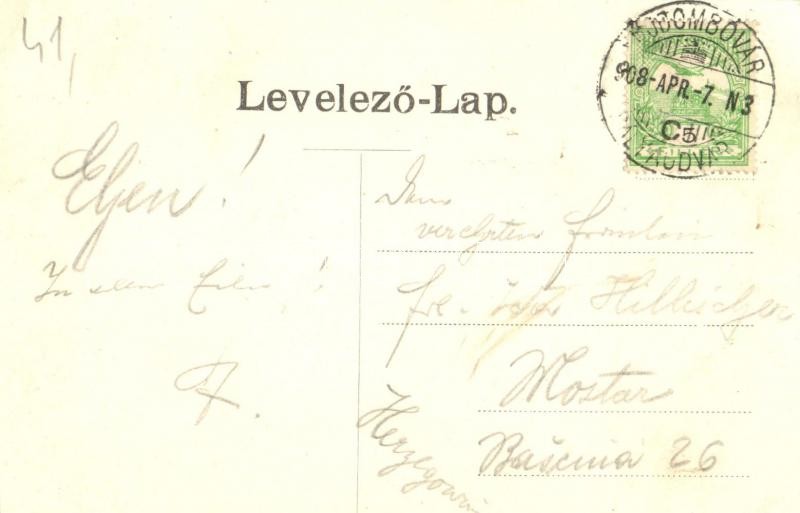 41,
Levelező-Lap.
DOMBÓVÁR
908-APR.-7. N3
C5
PÁLYAUDVAR
Eljen!
In aller Eile!
Dem
verehrten Fräulein
Frl. Hillischer
Mostar
Bašcina 26
Herzegowina